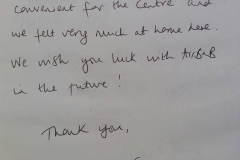 convenient for the Centre and
we felt very much at home here.
We wish you luck with AirBnB
in the future!
Thank you,